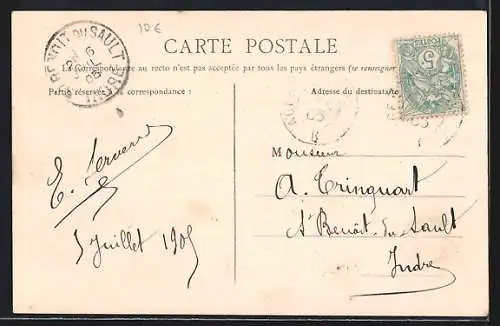 10 €
CARTE POSTALE
La Correspondance au recto n'est pas acceptée par tous les pays étrangers (se renseigner
Partie réservée à la correspondance :
Adresse du destinataire
St BENOIT DU SAULT
6
05
INDRE
05
Monsieur
A. Tringuart
St Benoit-du-Sault
Indre
5 Juillet 1905